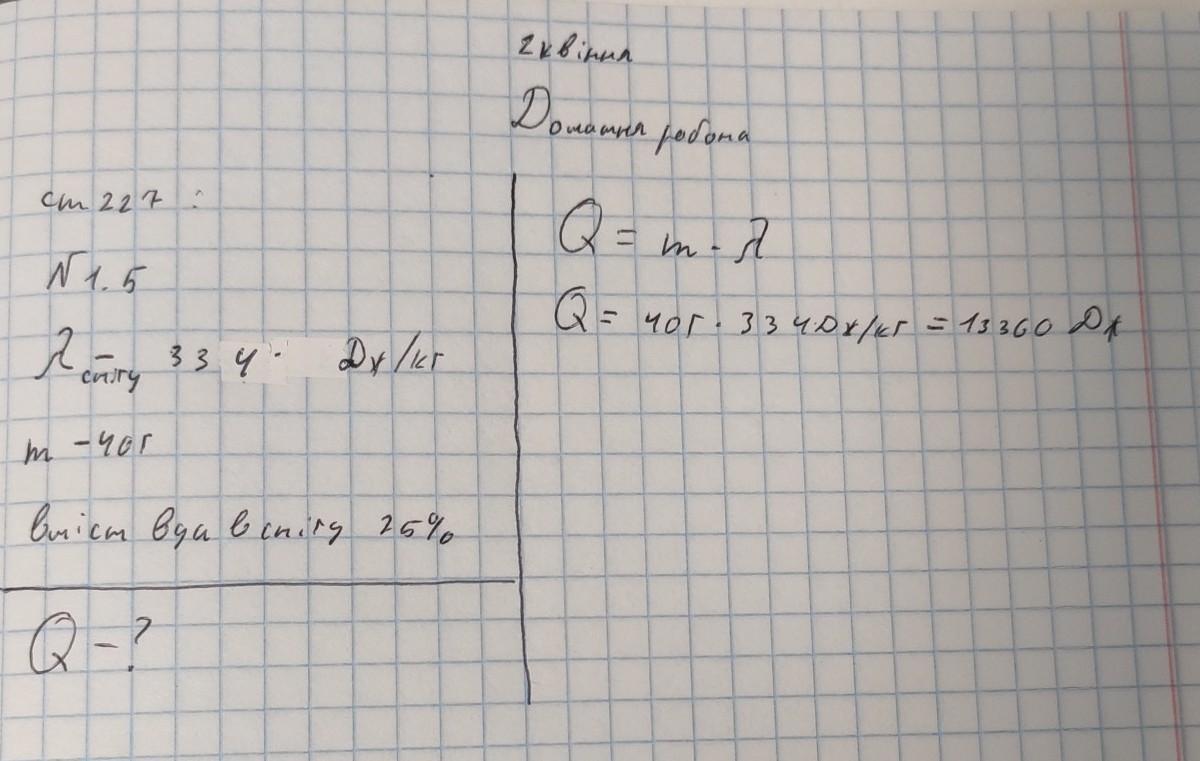 2 квітня
Домашня робота
ст 227 :
№1.5
λ снігу – 334 · Дж/кг
m – 40г
вміст вди в снігу 25%
Q – ?
Q = m · λ
Q = 40г · 334 Дж/кг = 13360 Дж